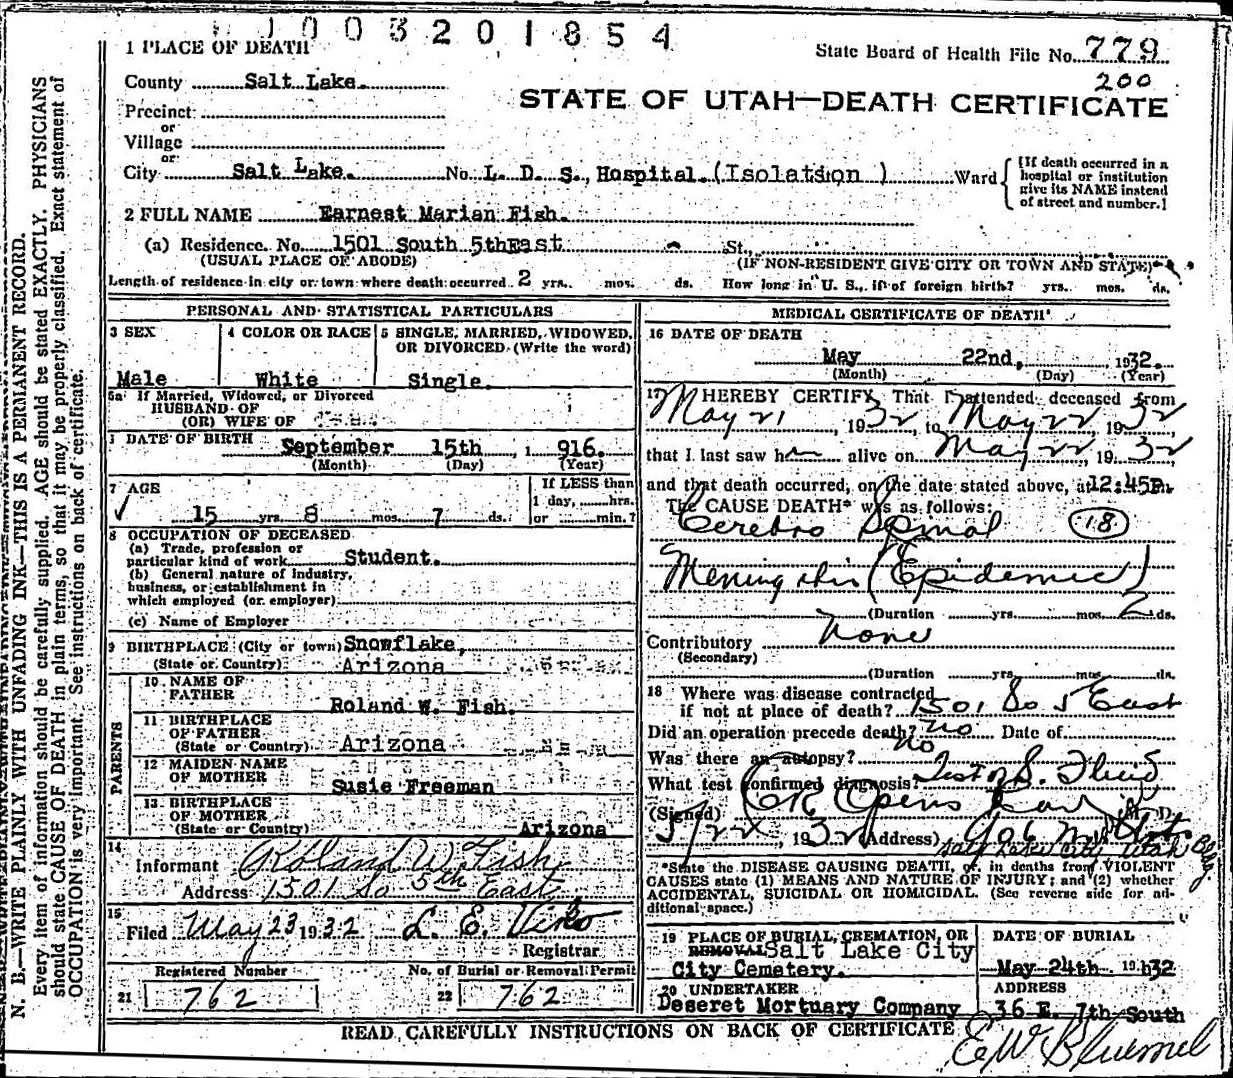 1003201854
1 PLACE OF DEATH
State Board of Health File No. 779
200
County Salt Lake.
STATE OF UTAH—DEATH CERTIFICATE
Precinct
or
Village
or
City Salt Lake. No. L. D. S., Hospital. (Isolatsion ) Ward
{If death occurred in a
hospital or institution
give its NAME instead
of street and number.}
2 FULL NAME Earnest Marian Fish.
(a) Residence. No. 1501 South 5thEast St.,
(USUAL PLACE OF ABODE) (IF NON-RESIDENT GIVE CITY OR TOWN AND STATE)
Length of residence in city or town where death occurred 2 yrs. mos. ds. How long in U. S., if of foreign birth? yrs. mos. ds.
PERSONAL AND STATISTICAL PARTICULARS
3 SEX 4 COLOR OR RACE 5 SINGLE, MARRIED, WIDOWED,
OR DIVORCED (Write the word)
Male White Single.
5a If Married, Widowed, or Divorced
HUSBAND OF
(OR) WIFE OF
DATE OF BIRTH September 15th, 1 916.
(Month) (Day) (Year)
7 AGE If LESS than
1 day, hrs.
15 yrs. 8 mos. 7 ds. or min.?
8 OCCUPATION OF DECEASED
(a) Trade, profession or
particular kind of work Student.
(b) General nature of industry,
business, or establishment in
which employed (or employer)
(c) Name of Employer
9 BIRTHPLACE (City or town) Snowflake,
(State or Country) Arizona
PARENTS
10 NAME OF
FATHER Roland W. Fish.
11 BIRTHPLACE
OF FATHER
(State or Country) Arizona
12 MAIDEN NAME
OF MOTHER Susie Freeman
13 BIRTHPLACE
OF MOTHER
(State or Country) Arizona
14
Informant Roland W. Fish
Address 1501 So 5th East
15
Filed May 23 1932 L. E. Viko
Registrar
Registered Number No. of Burial or Removal Permit
21 762 22 762
MEDICAL CERTIFICATE OF DEATH
16 DATE OF DEATH
May 22nd, 1932.
(Month) (Day) (Year)
17 I HEREBY CERTIFY, That I attended deceased from
May 21, 1932, to May 22, 1932
that I last saw h alive on May 22, 1932
and that death occurred, on the date stated above, at 12:45P m.
The CAUSE DEATH* was as follows:
Cerebro Spinal (18)
Meningitis (Epidemic)
(Duration yrs. mos. 2 ds.
Contributory None
(Secondary)
(Duration yrs. mos. ds.
18 Where was disease contracted
if not at place of death? 1501 So 5 East
Did an operation precede death? No Date of
Was there an autopsy? No
What test confirmed diagnosis? Test of S. Fluid
(Signed) M. D.
5/22, 1932 (Address) 906
Salt Lake City, Utah Bldg
*State the DISEASE CAUSING DEATH, or, in deaths from VIOLENT
CAUSES state (1) MEANS AND NATURE OF INJURY; and (2) whether
ACCIDENTAL, SUICIDAL OR HOMICIDAL. (See reverse side for ad-
ditional space.)
19 PLACE OF BURIAL, CREMATION, OR
REMOVAL Salt Lake City
City Cemetery.
DATE OF BURIAL
May 24th 1932
20 UNDERTAKER
Deseret Mortuary Company
ADDRESS
36 E. 7th South
READ CAREFULLY INSTRUCTIONS ON BACK OF CERTIFICATE
E W Bluemel
N. B.—WRITE PLAINLY WITH UNFADING INK—THIS IS A PERMANENT RECORD.
Every item of information should be carefully supplied. AGE should be stated EXACTLY. PHYSICIANS
should state CAUSE OF DEATH in plain terms, so that it may be properly classified. Exact statement of
OCCUPATION is very important. See instructions on back of certificate.